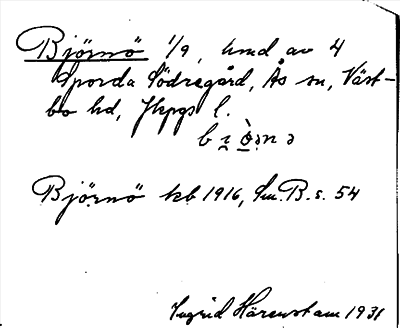 Björnö 1/9, und av 4
Sporda Södregård, Ås sn, Väst-
bo hd, Jkpgs l.
Björnö kb 1916, Sm.B.s. 54
Ingrid Härenstam 1931